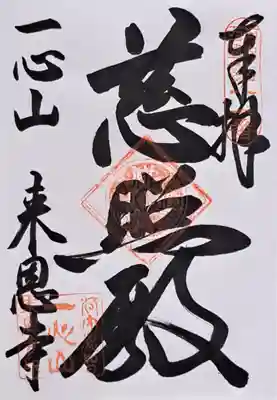 奉拝
慈照殿
一心山
来恩寺